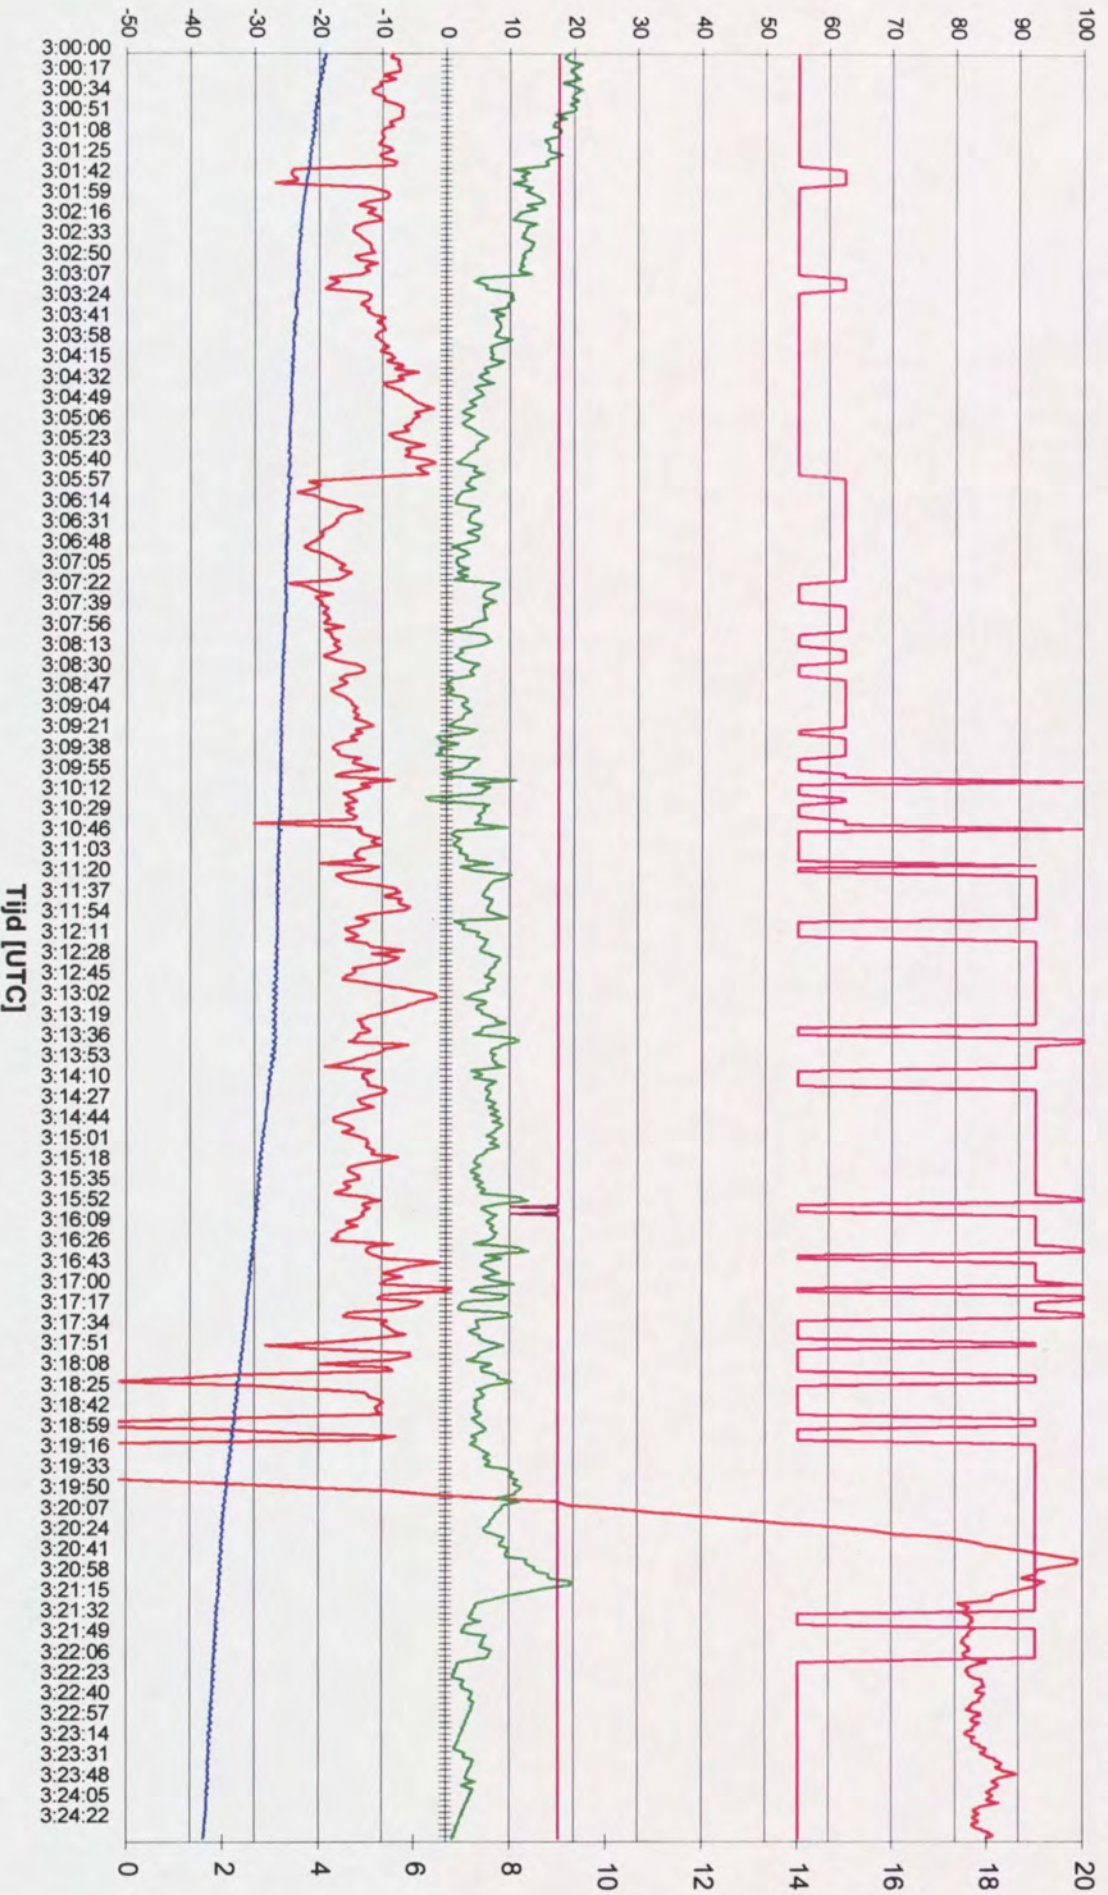 -50 -40 -30 -20 -10 0 10 20 30 40 50 60 70 80 90 100
3:00:00
3:00:17
3:00:34
3:00:51
3:01:08
3:01:25
3:01:42
3:01:59
3:02:16
3:02:33
3:02:50
3:03:07
3:03:24
3:03:41
3:03:58
3:04:15
3:04:32
3:04:49
3:05:06
3:05:23
3:05:40
3:05:57
3:06:14
3:06:31
3:06:48
3:07:05
3:07:22
3:07:39
3:07:56
3:08:13
3:08:30
3:08:47
3:09:04
3:09:21
3:09:38
3:09:55
3:10:12
3:10:29
3:10:46
3:11:03
3:11:20
3:11:37
3:11:54
3:12:11
3:12:28
3:12:45
3:13:02
3:13:19
3:13:36
3:13:53
3:14:10
3:14:27
3:14:44
3:15:01
3:15:18
3:15:35
3:15:52
3:16:09
3:16:26
3:16:43
3:17:00
3:17:17
3:17:34
3:17:51
3:18:08
3:18:25
3:18:42
3:18:59
3:19:16
3:19:33
3:19:50
3:20:07
3:20:24
3:20:41
3:20:58
3:21:15
3:21:32
3:21:49
3:22:06
3:22:23
3:22:40
3:22:57
3:23:14
3:23:31
3:23:48
3:24:05
3:24:22
Tijd [UTC]
0 2 4 6 8 10 12 14 16 18 20